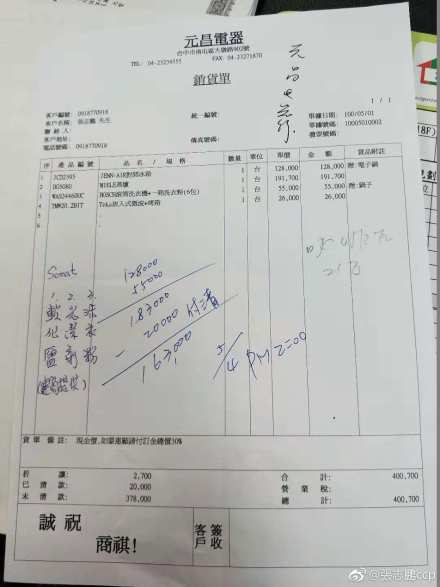 元昌電器
台中市南屯區大墩路902號
TEL: 04-23234555 FAX: 04-23271870
銷貨單
元昌电器行
1 / 1
客戶編號: 0918770918
客戶名稱: 張志鵬 先生
聯絡人:
客戶地址:
電話號碼: 0918770918
統一編號:
傳真號碼:
單據日期: 100/05/01
單據號碼: 10005010002
發票號碼:
序 產品編號 品名/規格 數量 單位 單價 金額 貨品附註
1 JCD2595 JENN-AIR對開冰箱 1 台 128,000 128,000 附:電子鍋
2 DG5080 MIELE蒸爐 1 台 191,700 191,700
3 WAS24460UC BOSCH滾筒洗衣機+一箱洗衣粉(6包) 1 台 55,000 55,000 附:鍋子
4 TMW20.2BIT Teka嵌入式微波+烤箱 1 台 26,000 26,000
5
6
128000
55000
1. 2. 3.
183000
- 20000 付清
163000
5/4 PM 2:00
貨單備註: 現金價,如要退顧請付訂金總價30%
折讓: 2,700
已清款: 20,000
未清款: 378,000
合計: 400,700
營業稅:
總計: 400,700
誠祝
商祺!
客戶簽收
@張志鵬ccp